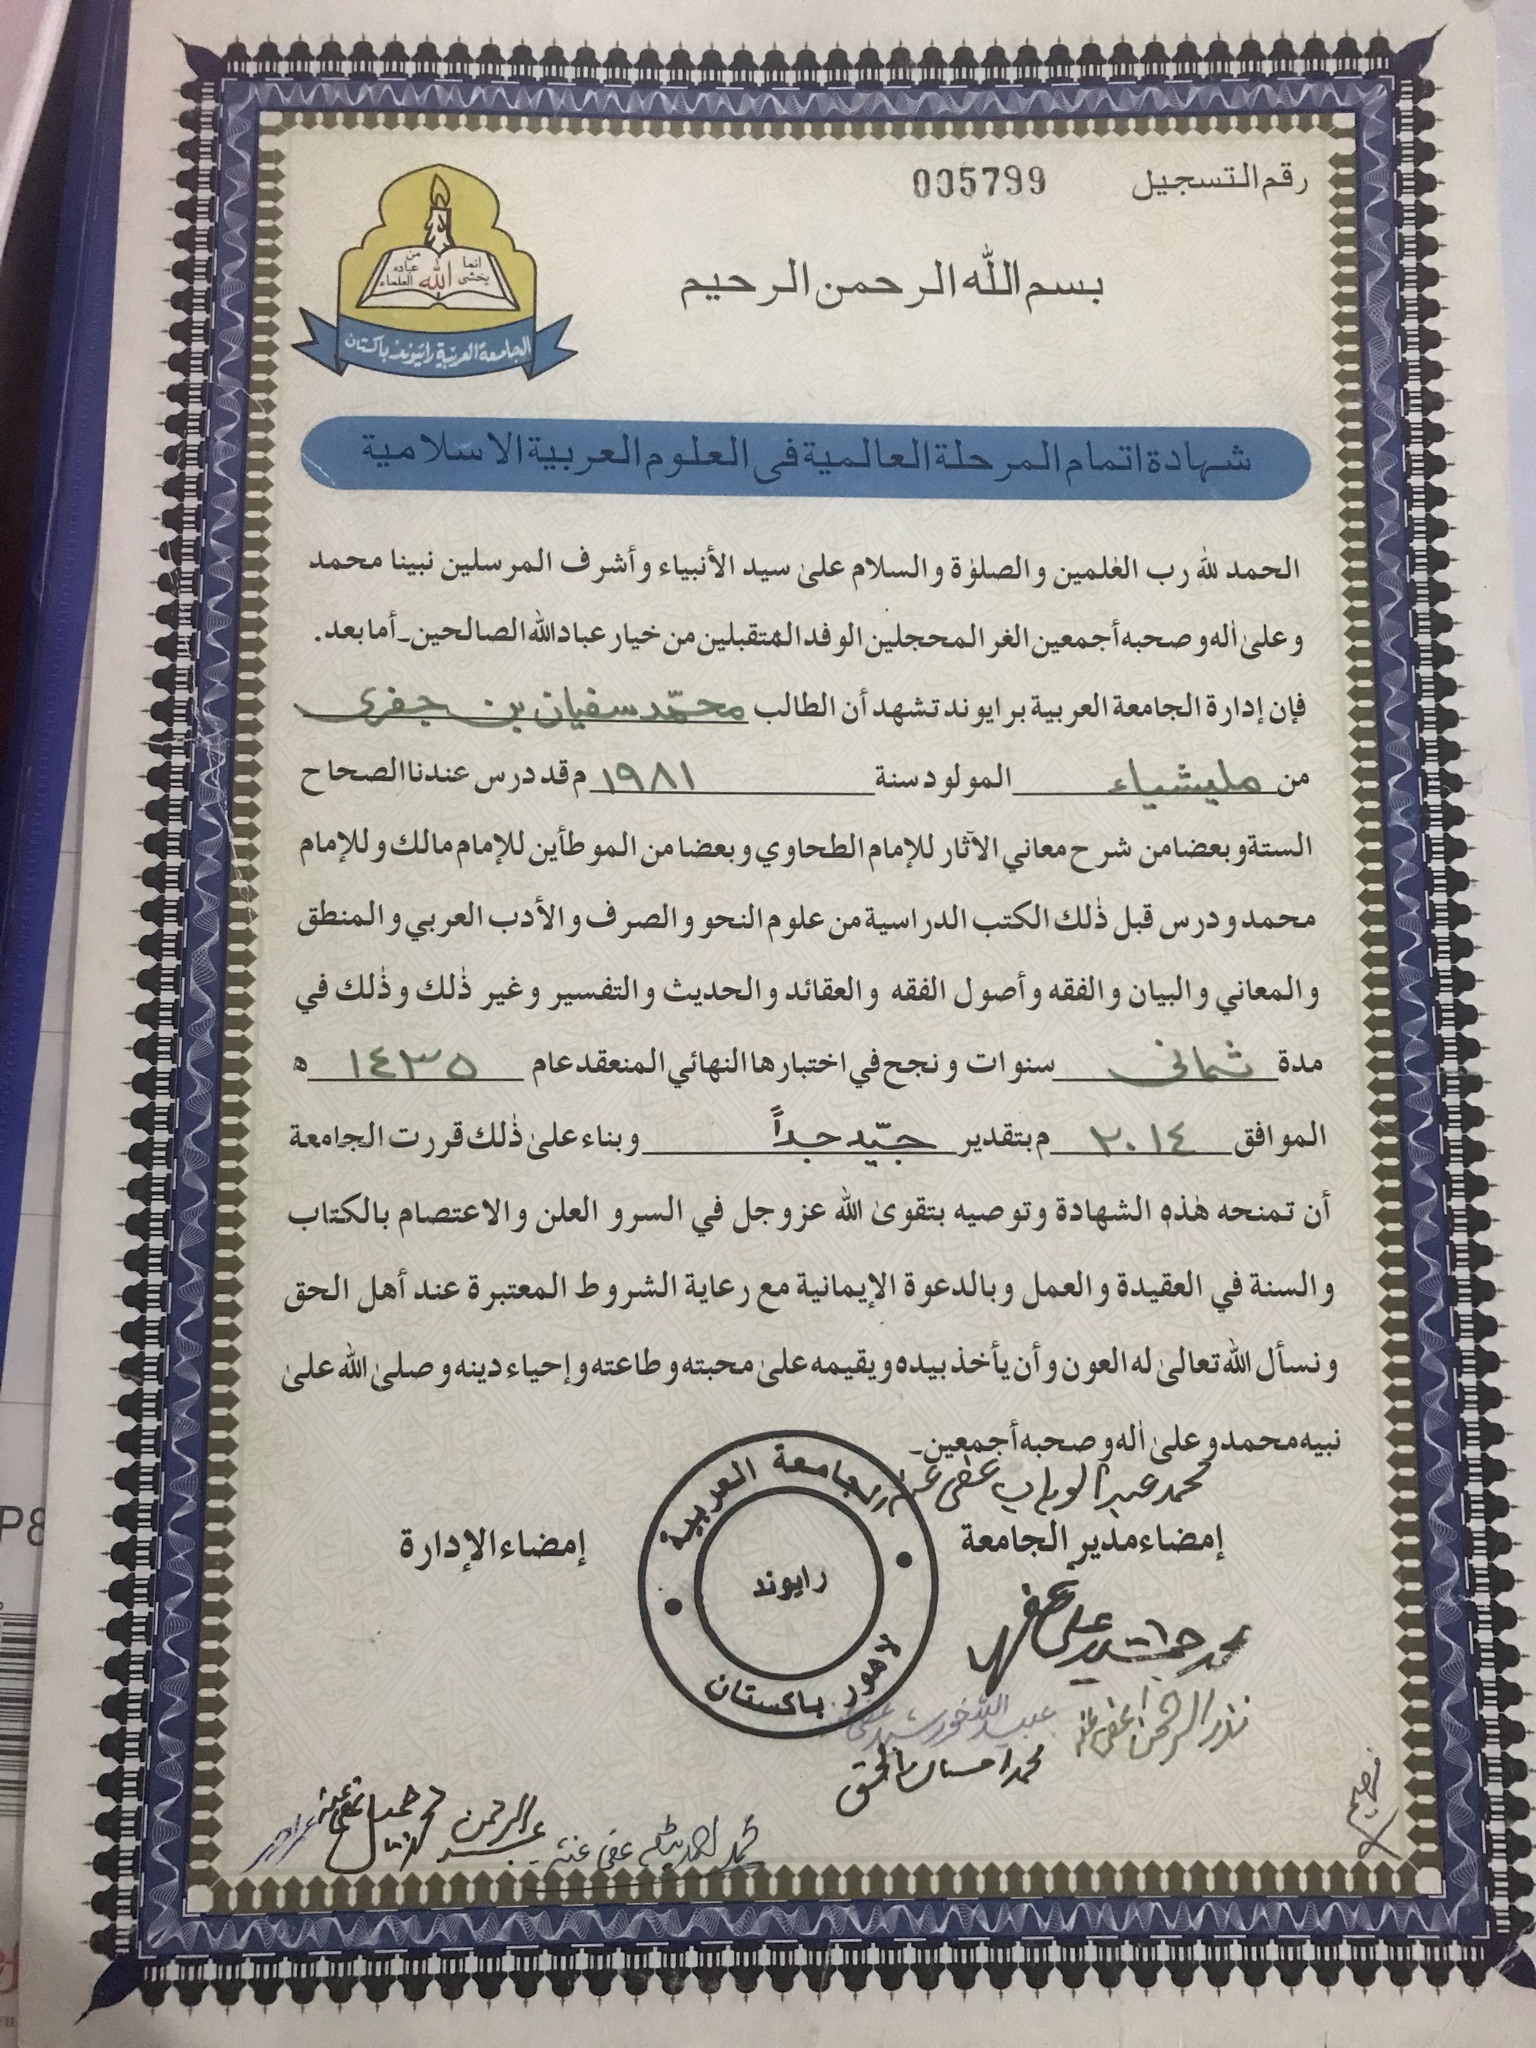 رقم التسجيل 005799
انما يخشى الله من عباده العلماء
الجامعة العربية رائيوند باكستان
بسم الله الرحمن الرحيم
شهادة اتمام المرحلة العالمية فى العلوم العربية الاسلامية
الحمد لله رب العٰلمين والصلوٰة والسلام علىٰ سيد الأنبياء وأشرف المرسلين نبينا محمد
وعلىٰ اٰله وصحبه أجمعين الغر المحجلين الوفد المتقبلين من خيار عباد الله الصالحين۔ أما بعد.
فإن إدارة الجامعة العربية برايوند تشهد أن الطالب محمّد سفيان بن جفرى
من مليشياء المولود سنة ١٩٨١ م قد درس عندنا الصحاح
الستة وبعضا من شرح معاني الآثار للإمام الطحاوي وبعضا من الموطأين للإمام مالك وللإمام
محمد ودرس قبل ذٰلك الكتب الدراسية من علوم النحو والصرف والأدب العربي والمنطق
والمعاني والبيان والفقه وأصول الفقه والعقائد والحديث والتفسير وغير ذٰلك وذٰلك في
مدة ثمانى سنوات ونجح في اختبارها النهائي المنعقد عام ١٤٣٥ ه
الموافق ٢٠١٤ م بتقدير جيّد جداً وبناء علىٰ ذٰلك قررت الجامعة
أن تمنحه هٰذه الشهادة وتوصيه بتقوىٰ الله عزوجل في السر والعلن والاعتصام بالكتاب
والسنة في العقيدة والعمل وبالدعوة الإيمانية مع رعاية الشروط المعتبرة عند أهل الحق
ونسأل الله تعالىٰ له العون وأن يأخذ بيده ويقيمه علىٰ محبته وطاعته وإحياء دينه وصلىٰ الله علىٰ
نبيه محمد وعلىٰ اٰله وصحبه أجمعين۔
محمد عبد الوهاب عفى عنه
إمضاء مدير الجامعة
إمضاء الإدارة
جامعة العربية
رايوند
لاهور باكستان
محمد جمشيد على
نذر الرحمن عفى عنه
عبيد الله خورشيد عفى
محمد احسان الحق
عبد الرحمن
محمد احمد عفى عنه